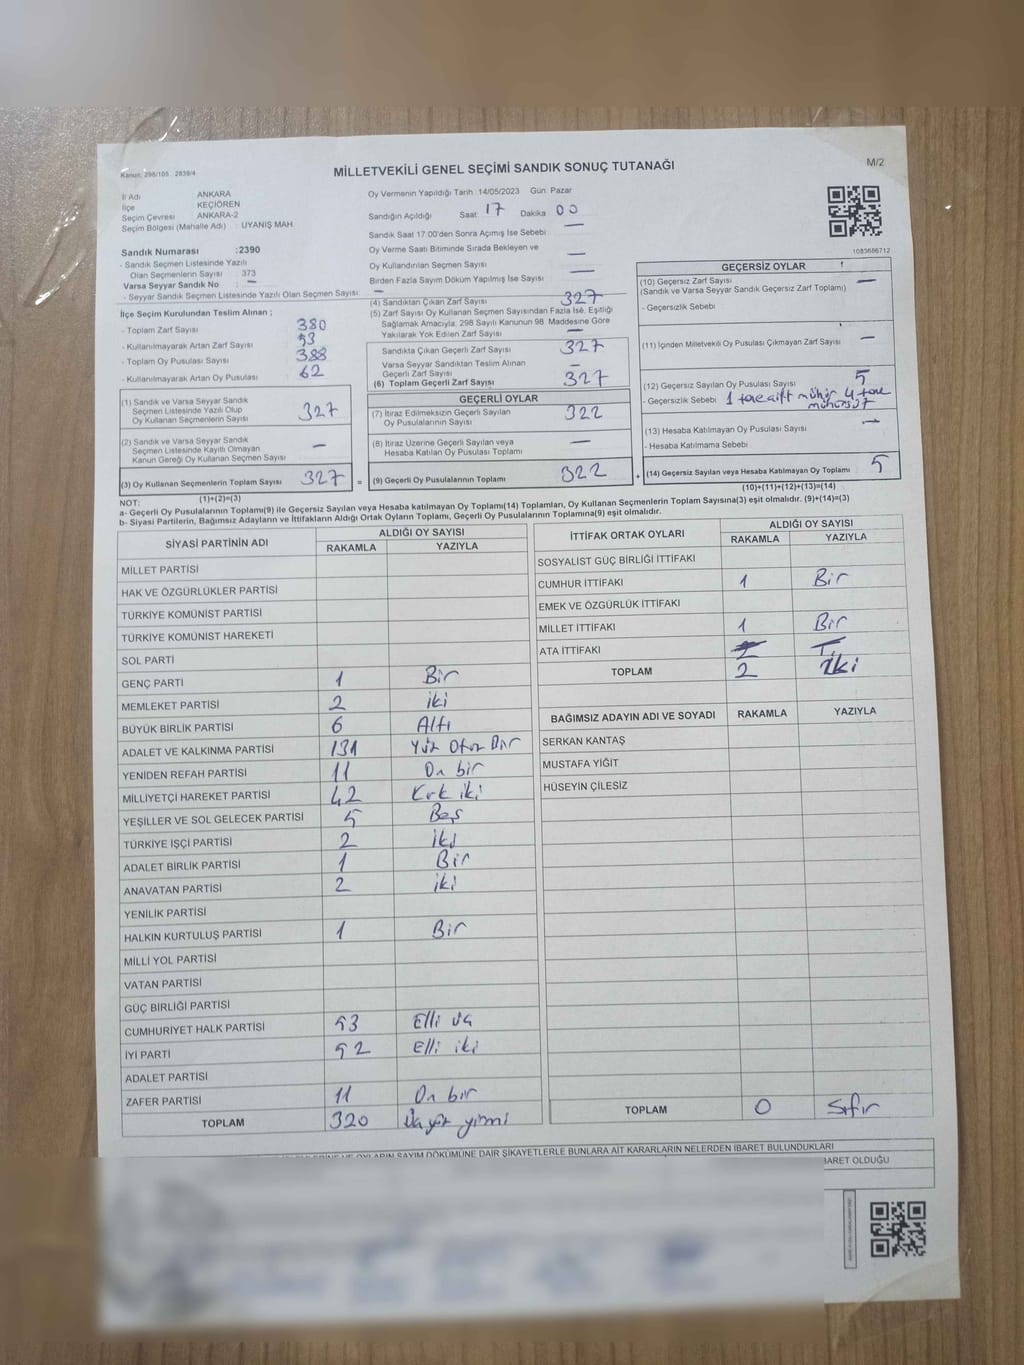 Kanun: 298/105 . 2839/4
MİLLETVEKİLİ GENEL SEÇİMİ SANDIK SONUÇ TUTANAĞI
M/2
İl Adı ANKARA
İlçe KEÇİÖREN
Seçim Çevresi ANKARA-2
Seçim Bölgesi (Mahalle Adı) : UYANIŞ MAH.
Oy Vermenin Yapıldığı Tarih : 14/05/2023 Gün Pazar
Sandığın Açıldığı Saat 17 Dakika 00
Sandık Saat 17:00'den Sonra Açımış İse Sebebi —
Oy Verme Saati Bitiminde Sırada Bekleyen ve
Oy Kullandırılan Seçmen Sayısı —
Birden Fazla Sayım Döküm Yapılmış İse Sayısı —
1083686712
Sandık Numarası :2390
- Sandık Seçmen Listesinde Yazılı
Olan Seçmenlerin Sayısı : 373
Varsa Seyyar Sandık No : —
- Seyyar Sandık Seçmen Listesinde Yazılı Olan Seçmen Sayısı: —
İlçe Seçim Kurulundan Teslim Alınan ;
- Toplam Zarf Sayısı 380
- Kullanılmayarak Artan Zarf Sayısı 53
- Toplam Oy Pusulası Sayısı 388
- Kullanılmayarak Artan Oy Pusulası 62
(1) Sandık ve Varsa Seyyar Sandık
Seçmen Listesinde Yazılı Olup
Oy Kullanan Seçmenlerin Sayısı 327
(2) Sandık ve Varsa Seyyar Sandık
Seçmen Listesinde Kayıtlı Olmayan
Kanun Gereği Oy Kullanan Seçmen Sayısı —
(3) Oy Kullanan Seçmenlerin Toplam Sayısı 327 =
(1)+(2)=(3)
(4) Sandıktan Çıkan Zarf Sayısı 327
(5) Zarf Sayısı Oy Kullanan Seçmen Sayısından Fazla İse, Eşitliği
Sağlamak Amacıyla, 298 Sayılı Kanunun 98. Maddesine Göre
Yakılarak Yok Edilen Zarf Sayısı —
Sandıkta Çıkan Geçerli Zarf Sayısı 327
Varsa Seyyar Sandıktan Teslim Alınan
Geçerli Zarf Sayısı —
(6) Toplam Geçerli Zarf Sayısı 327
GEÇERLİ OYLAR
(7) İtiraz Edilmeksizin Geçerli Sayılan
Oy Pusulalarının Sayısı 322
(8) İtiraz Üzerine Geçerli Sayılan veya
Hesaba Katılan Oy Pusulası Toplamı —
(9) Geçerli Oy Pusulalarının Toplamı 322 +
GEÇERSİZ OYLAR
(10) Geçersiz Zarf Sayısı —
(Sandık ve Varsa Seyyar Sandık Geçersiz Zarf Toplamı)
- Geçersizlik Sebebi :
(11) İçinden Milletvekili Oy Pusulası Çıkmayan Zarf Sayısı —
(12) Geçersiz Sayılan Oy Pusulası Sayısı 5
- Geçersizlik Sebebi : 1 tane çift mühür 4 tane
mühürsüz
(13) Hesaba Katılmayan Oy Pusulası Sayısı —
- Hesaba Katılmama Sebebi :
(14) Geçersiz Sayılan veya Hesaba Katılmayan Oy Toplamı 5
(10)+(11)+(12)+(13)=(14)
NOT:
a- Geçerli Oy Pusulalarının Toplamı(9) ile Geçersiz Sayılan veya Hesaba katılmayan Oy Toplamı(14) Toplamları, Oy Kullanan Seçmenlerin Toplam Sayısına(3) eşit olmalıdır. (9)+(14)=(3)
b- Siyasi Partilerin, Bağımsız Adayların ve İttifakların Aldığı Ortak Oyların Toplamı, Geçerli Oy Pusulalarının Toplamına(9) eşit olmalıdır.
SİYASİ PARTİNİN ADI ALDIĞI OY SAYISI
RAKAMLA YAZIYLA
MİLLET PARTİSİ
HAK VE ÖZGÜRLÜKLER PARTİSİ
TÜRKİYE KOMÜNİST PARTİSİ
TÜRKİYE KOMÜNİST HAREKETİ
SOL PARTİ
GENÇ PARTİ 1 Bir
MEMLEKET PARTİSİ 2 iki
BÜYÜK BİRLİK PARTİSİ 6 Altı
ADALET VE KALKINMA PARTİSİ 131 Yüz Otuz Bir
YENİDEN REFAH PARTİSİ 11 On bir
MİLLİYETÇİ HAREKET PARTİSİ 42 Kırk iki
YEŞİLLER VE SOL GELECEK PARTİSİ 5 Beş
TÜRKİYE İŞÇİ PARTİSİ 2 iki
ADALET BİRLİK PARTİSİ 1 Bir
ANAVATAN PARTİSİ 2 iki
YENİLİK PARTİSİ
HALKIN KURTULUŞ PARTİSİ 1 Bir
MİLLİ YOL PARTİSİ
VATAN PARTİSİ
GÜÇ BİRLİĞİ PARTİSİ
CUMHURİYET HALK PARTİSİ 53 Elli üç
İYİ PARTİ 52 Elli iki
ADALET PARTİSİ
ZAFER PARTİSİ 11 On bir
TOPLAM 320 Üçyüz yirmi
İTTİFAK ORTAK OYLARI ALDIĞI OY SAYISI
RAKAMLA YAZIYLA
SOSYALİST GÜÇ BİRLİĞİ İTTİFAKI
CUMHUR İTTİFAKI 1 Bir
EMEK VE ÖZGÜRLÜK İTTİFAKI
MİLLET İTTİFAKI 1 Bir
ATA İTTİFAKI
TOPLAM 2 iki
BAĞIMSIZ ADAYIN ADI VE SOYADI RAKAMLA YAZIYLA
SERKAN KANTAŞ
MUSTAFA YİĞİT
HÜSEYİN ÇİLESİZ
TOPLAM 0 Sıfır
OYLARIN SAYIM DÖKÜMÜNE DAİR ŞİKAYETLERLE BUNLARA AİT KARARLARIN NELERDEN İBARET BULUNDUKLARI
İBARET OLDUĞU